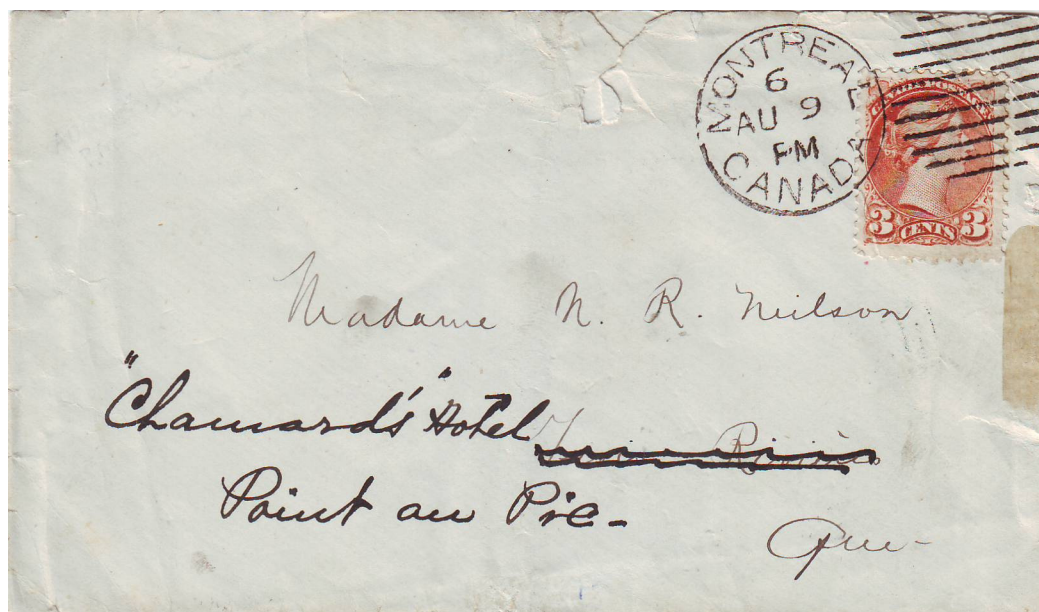 MONTREAL
6
AU 9
PM
CANADA
CANADA POSTAGE
3 CENTS 3
Madame N. R. Neilson
"Chamard's" Hotel
Point au Pic-
Que-